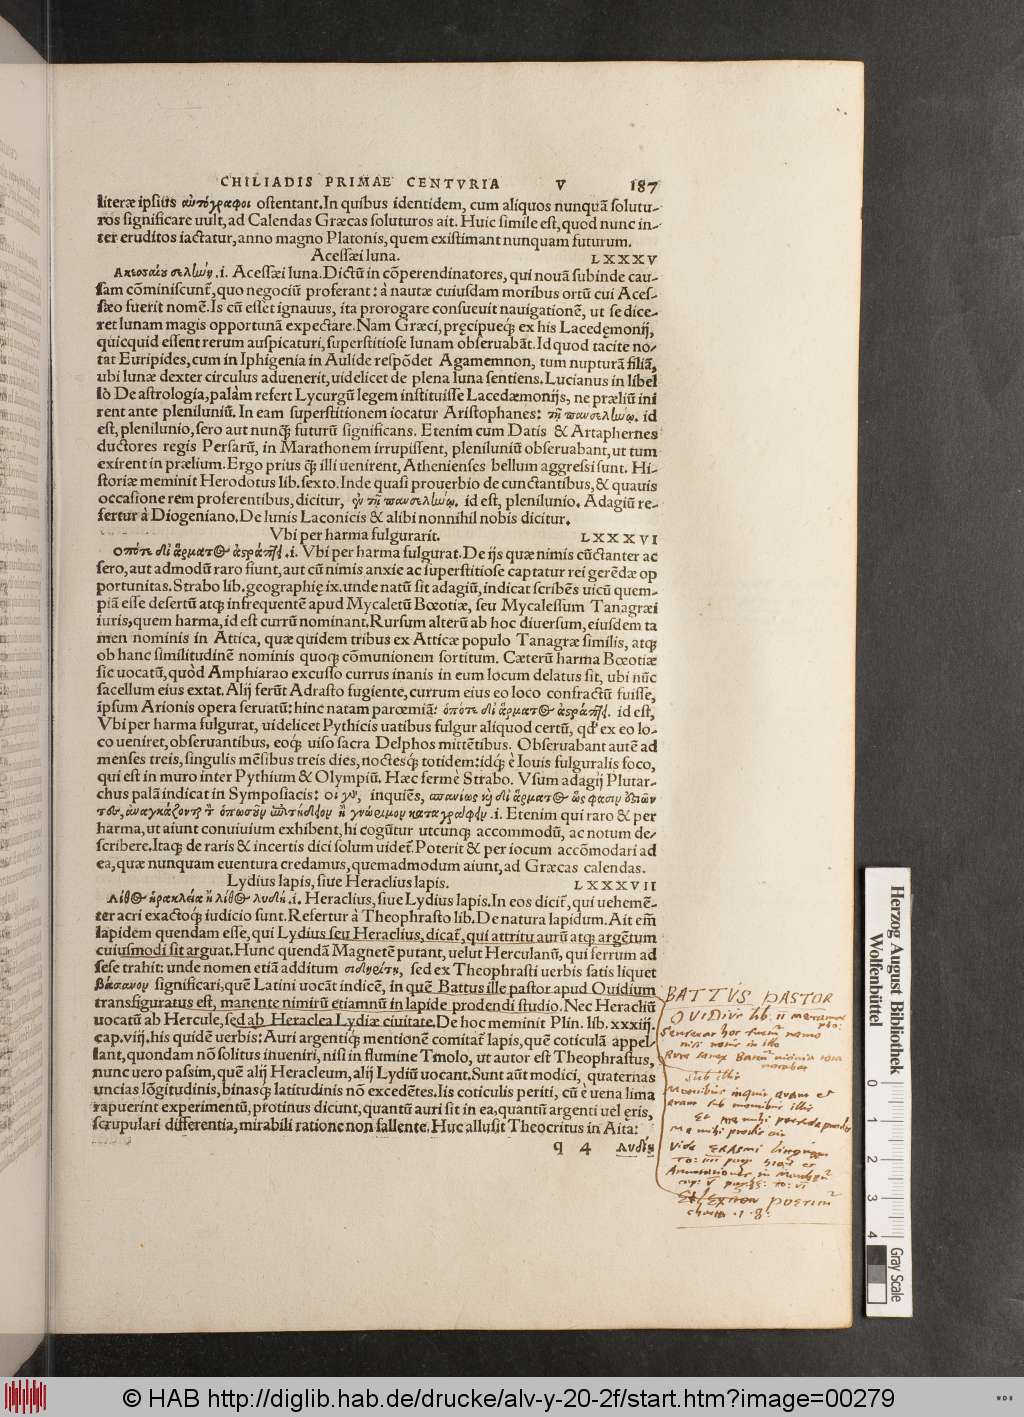 CHILIADIS PRIMAE CENTVRIA V 187
literæ ipsius αὐτόγραφοι ostentant. In quibus identidem, cum aliquos nunquā solutu-
ros significare uult, ad Calendas Græcas soluturos ait. Huic simile est, quod nunc in-
ter eruditos iactatur, anno magno Platonis, quem existimant nunquam futurum.
Acessæi luna. LXXXV
Ακεσαίου σελήνη .i. Acessæi luna. Dictū in cōperendinatores, qui nouā subinde cau-
sam cōminiscunt̃, quo negociū proferant: à nautæ cuiusdam moribus ortū cui Aces-
sæo fuerit nomē. Is cū esset ignauus, ita prorogare consueuit nauigationē, ut se dice-
ret lunam magis opportunā expectare. Nam Græci, pręcipueq; ex his Lacedęmonij,
quicquid essent rerum auspicaturi, superstitiose lunam obseruabāt. Id quod tacite no-
tat Euripides, cum in Iphigenia in Aulide respōdet Agamemnon, tum nupturā filiā,
ubi lunæ dexter circulus aduenerit, uidelicet de plena luna sentiens. Lucianus in libel
lo De astrologia, palàm refert Lycurgū legem instituisse Lacedæmonijs, ne præliū ini
rent ante pleniluniū. In eam superstitionem iocatur Aristophanes: τῇ πανσελήνῳ. id
est, plenilunio, sero aut nunq̃ futurū significans. Etenim cum Datis & Artaphernes
ductores regis Persarū, in Marathonem irrupissent, pleniluniū obseruabant, ut tum
exirent in prælium. Ergo prius q̃ illi uenirent, Athenienses bellum aggressi sunt. Hi-
storiæ meminit Herodotus lib. sexto. Inde quasi prouerbio de cunctantibus, & quauis
occasione rem proferentibus, dicitur, ἐν τῇ πανσελήνῳ. id est, plenilunio. Adagiū re-
fertur à Diogeniano. De lunis Laconicis & alibi nonnihil nobis dicitur.
Vbi per harma fulgurarit. LXXXVI
Οπότε δι' ἅρματος ἀστράπτῃ .i. Vbi per harma fulgurat. De ijs quæ nimis cūctanter ac
sero, aut admodū raro fiunt, aut cū nimis anxie ac superstitiose captatur rei gerēdæ op
portunitas. Strabo lib. geographię ix. unde natū sit adagiū, indicat scribēs uicū quem-
piā esse desertū atq; infrequentē apud Mycaletū Bœotiæ, seu Mycalessum Tanagræi
iuris, quem harma, id est currū nominant. Rursum alterū ab hoc diuersum, eiusdem ta
men nominis in Attica, quæ quidem tribus ex Atticæ populo Tanagræ similis, atq;
ob hanc similitudinē nominis quoq; cōmunionem sortitum. Cæterū harma Bœotiæ
sic uocatū, quòd Amphiarao excusso currus inanis in eum locum delatus sit, ubi nūc
sacellum eius extat. Alij ferūt Adrasto fugiente, currum eius eo loco confractū fuisse,
ipsum Arionis opera seruatū: hinc natam parœmiā: ὁπότε δι' ἅρματος ἀστράπτῃ. id est,
Vbi per harma fulgurat, uidelicet Pythicis uatibus fulgur aliquod certū, qđ ex eo lo-
co ueniret, obseruantibus, eoq; uiso sacra Delphos mittētibus. Obseruabant autē ad
menses treis, singulis mēsibus treis dies, noctesq; totidem: idq; è Iouis fulguralis foco,
qui est in muro inter Pythium & Olympiū. Hæc fermè Strabo. Vsum adagij Plutar-
chus palā indicat in Symposiacis: οἱ γὰρ, inquiēs, σπανίως καὶ δι' ἅρματος ὥς φασιν ἑστιῶν
τες, ἀναγκάζονται τὸ ὁπωσοῦν ἐπιτήδειον ἢ γνώριμον καταγράφειν .i. Etenim qui raro & per
harma, ut aiunt conuiuium exhibent, hi cogūtur utcunq; accommodū, ac notum de-
scribere. Itaq; de raris & incertis dici solum uidet̃. Poterit & per iocum accōmodari ad
ea, quæ nunquam euentura credamus, quemadmodum aiunt, ad Græcas calendas.
Lydius lapis, siue Heraclius lapis. LXXXVII
Λίθος ἡρακλεία ἢ λίθος λυδίη .i. Heraclius, siue Lydius lapis. In eos dicit̃, qui uehemē-
ter acri exactoq; iudicio sunt. Refertur à Theophrasto lib. De natura lapidum. Ait em̃
lapidem quendam esse, qui Lydius seu Heraclius, dicat̃, qui attritu aurū atq; argētum
cuiusmodi sit arguat. Hunc quendā Magnetē putant, uelut Herculanū, qui ferrum ad
sese trahit: unde nomen etiā additum σιδηρίτη, sed ex Theophrasti uerbis satis liquet
βάσανον significari, quē Latini uocāt indicē, in quē Battus ille pastor apud Ouidium
transfiguratus est, manente nimirū etiamnū in lapide prodendi studio. Nec Heracliū
uocatū ab Hercule, sed ab Heraclea Lydiæ ciuitate. De hoc meminit Plin. lib. xxxiij.
cap. viij. his quidē uerbis: Auri argentiq; mentionē comitat̃ lapis, quē coticulā appel-
lant, quondam nō solitus inueniri, nisi in flumine Tmolo, ut autor est Theophrastus,
nunc uero passim, quē alij Heracleum, alij Lydiū uocant. Sunt aūt modici, quaternas
uncias lōgitudinis, binasq; latitudinis nō excedētes. Iis coticulis periti, cū è uena lima
rapuerint experimentū, protinus dicunt, quantū auri sit in ea, quantū argenti uel eris,
scrupulari differentia, mirabili ratione non fallente. Huc allusit Theocritus in Aita:
q 4 Λυδίη
BATTVS PASTOR
OVIDIVS lib. ii metamor
pho:
nisi notus in illo
sub illis
Montibus inquit erunt et
erant sub montibus illis
Et me mihi perfide prodis
me mihi prodis ait
Vide ERASMI linguam
Herzog August Bibliothek
Wolfenbüttel
0 1 2 3 4
Gray Scale
© HAB http://diglib.hab.de/drucke/alv-y-20-2f/start.htm?image=00279